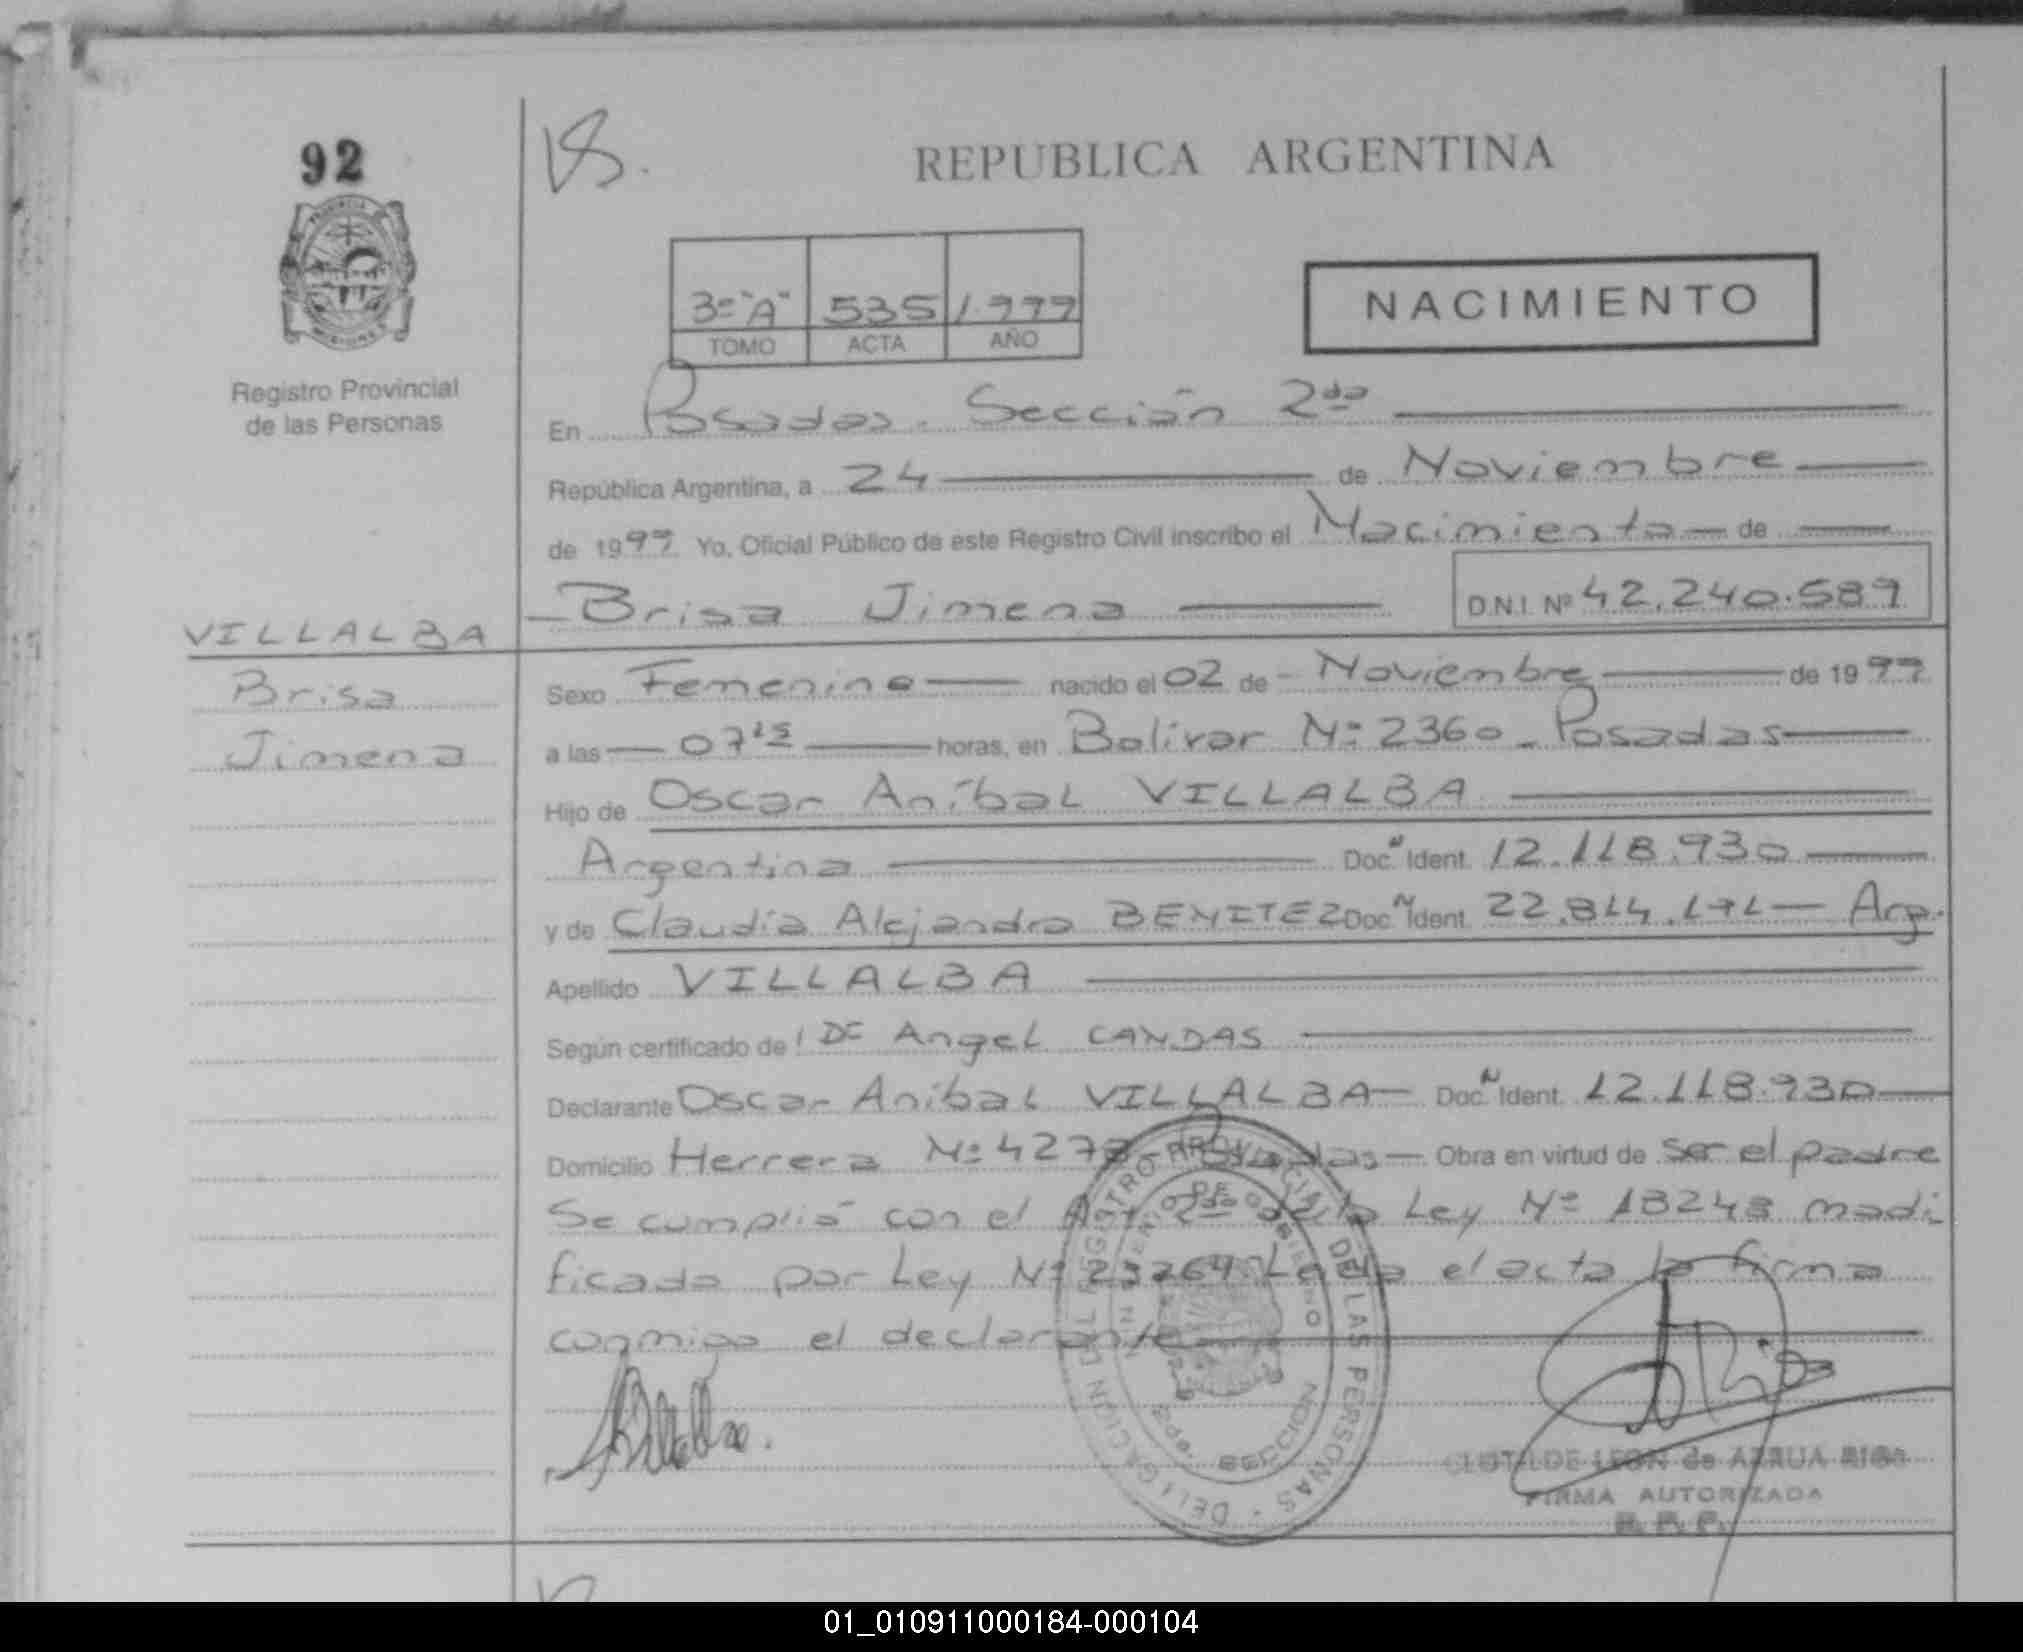 92
VS.
REPUBLICA ARGENTINA
PROVINCIA DE
MISIONES
3º "A" 535 1.999
TOMO ACTA AÑO
NACIMIENTO
Registro Provincial
de las Personas
En Posadas. Sección 2da
República Argentina, a 24 de Noviembre
de 1999 Yo, Oficial Público de este Registro Civil inscribo el Nacimiento de
Brisa Jimena D.N.I. Nº 42.240.589
VILLALBA
Brisa
Jimena
Sexo Femenino nacido el 02 de Noviembre de 1999
a las 07 15 horas, en Bolivar Nº 2360 - Posadas
Hijo de Oscar Aníbal VILLALBA
Argentina Doc. N Ident. 12.118.930
y de Claudia Alejandra BENITEZ Doc. N Ident. 22.814.171 — Arg.
Apellido VILLALBA
Según certificado de: Dr Angel CANDAS
Declarante Oscar Aníbal VILLALBA — Doc. N Ident. 12.118.930
Domicilio Herrera Nº 4278 - Posadas — Obra en virtud de ser el padre
Se cumplió con el Art 2do de la Ley Nº 18248 modi
ficado por Ley Nº 23264 Leida el acta la firma
conmigo el declarante
DELEGACION DEL REGISTRO PROVINCIAL DE LAS PERSONAS
MINISTERIO DE GOBIERNO
SECCION 2da
CLOTILDE LEON de AZRUA RIOS
FIRMA AUTORIZADA
R. P. P.
01_010911000184-000104